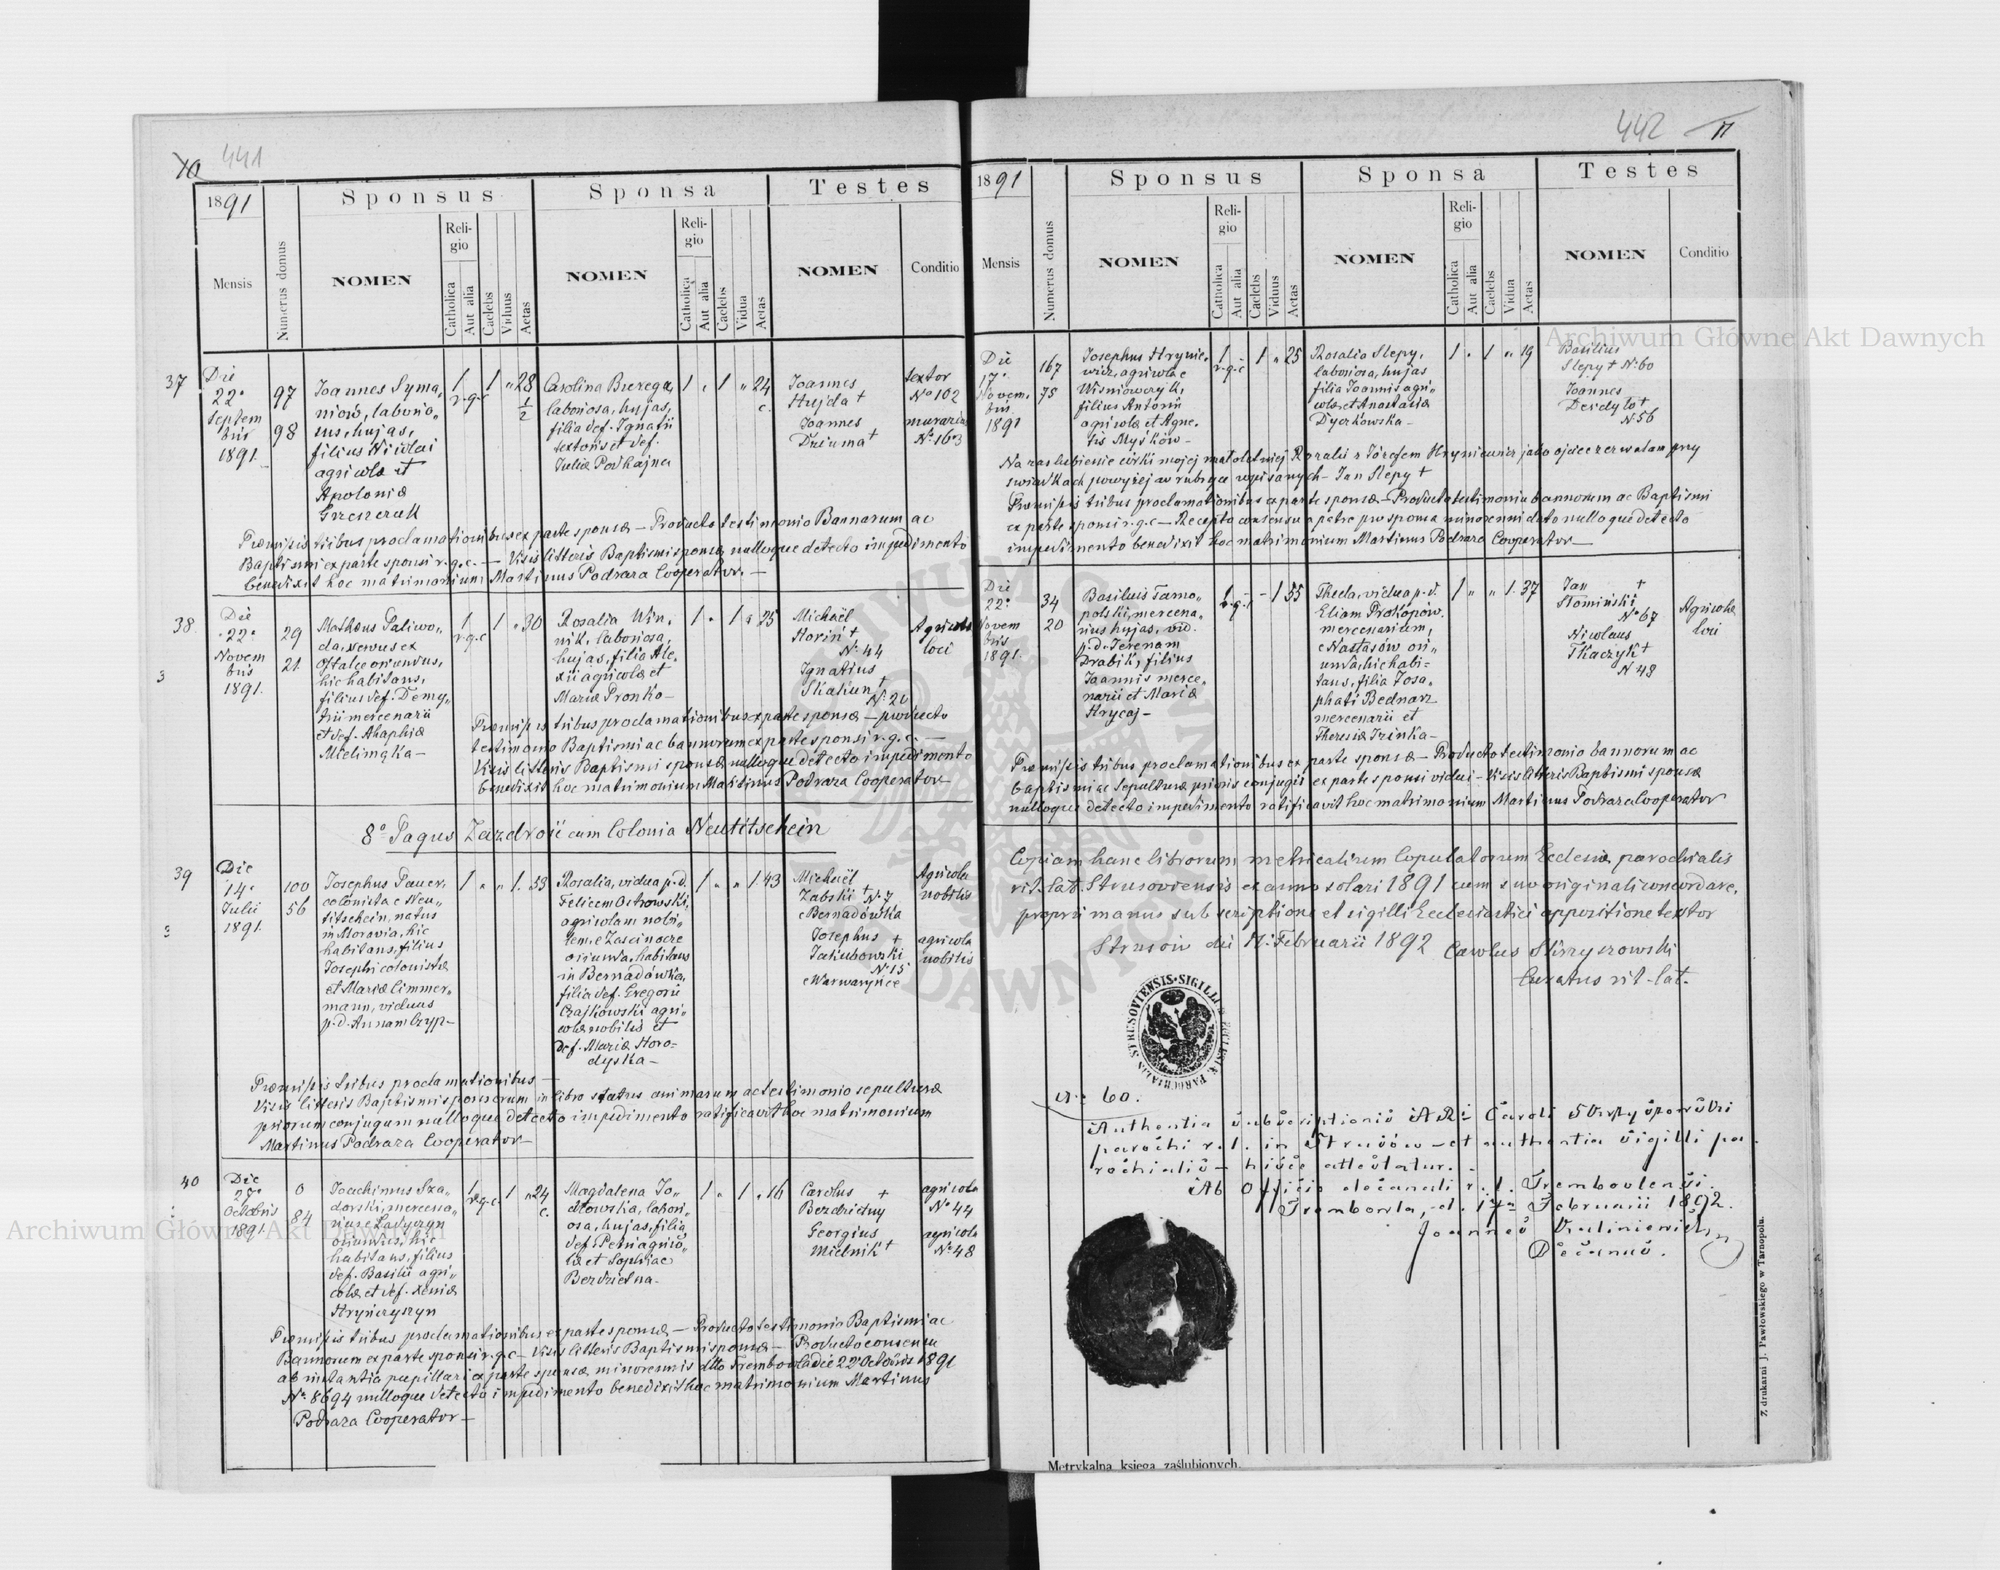 70 441
1891
Sponsus Sponsa Testes
Mensis
Numerus domus
NOMEN
Religio
Catholica
Aut alia
Caelebs
Viduus
Aetas
NOMEN
Religio
Catholica
Aut alia
Caelebs
Vidua
Aetas
NOMEN
Conditio
37
Die
22a
Septem
bris
1891.
97
98
Joannes Syma„
niów, laborio„
sus, hujas,
filius Nicolai
agricolæ et
Apoloniæ
Grzeszczuk
1
r.g.c
1 „ 28
1/2
Carolina Brezega,
laboriosa, hujas,
filia def. Ignatii
textoris et def.
Juliæ Podhajna
1 „ 1 „ 24
c.
Joannes
Hujda +
Joannes
Dziuma +
textor
No 102
murarius
No 163
Præmissis tribus proclamationibus ex parte sponsæ — Producto testimonio Bannorum ac
Baptismi ex parte sponsi r.g.c. — Visis litteris Baptismi sponsæ nulloque detecto impedimento
benedixit hoc matrimonium Martinus Podraza Cooperator. —
38.
Die
22a
Novem
bris
1891.
29
21
Mathæus Paliwo„
da, servus ex
Ostalce oriundus,
hic habitans,
filius def. Demy„
trii mercenarii
et def. Ahaphiæ
Mielimąka —
1
r.g.c
1 „ 30
Rosalia Win„
nik, laboriosa,
hujas, filia Ale„
xii agricolæ et
Mariæ Pronko —
1 „ 1 „ 25
Michaël
Horiń +
No 44
Ignatius
Skakun +
No 20
Agricolæ
loci
Præmissis tribus proclamationibus ex parte sponsæ — producto
testimonio Baptismi ac bannorum ex parte sponsi r.g.c. —
Visis litteris Baptismi sponsæ nulloque detecto impedimento
benedixit hoc matrimonium Martinus Podraza Cooperator —
3
8o Pagus Zazdrość cum Colonia Neutitschein
39
Die
14a
Julii
1891.
100
56
Josephus Pauer,
colonista e Neu„
titschein, natus
in Moravia, hic
habitans, filius
Josephi colonistæ
et Mariæ Cimmer„
mann, viduus
p.d. Annam Czyp —
1 „ „ 1. 53
Rosalia, vidua p.d.
Felicem Ostrowski,
agricolam nobi„
lem, e Zascinocze
oriunda, habitans
in Bernadówka,
filia def. Gregorii
Czajkowski agri„
colæ nobilis et
def. Mariæ Horo„
dyska —
1 „ „ 1. 43
Michaël
Zabski + No 7
e Bernadówka
Josephus +
Jakubowski
No 15
e Warwaryńce
Agricola
nobilis
agricola
nobilis
3
Præmissis tribus proclamationibus —
Visis litteris Baptismi sponsorum in libro status animarum ac testimonio sepulturæ
priorum conjugum nulloque detecto impedimento ratificavit hoc matrimonium
Martinus Podraza Cooperator —
40
Die
28a
Octobris
1891.
0
84
Joachimus Sza„
dorski, mercena„
rius e Ladyczyn
oriundus, hic
habitans, filius
def. Basilii agri„
colæ et def. Xeniæ
Hryńczyszyn
1
r.g.c.
1 „ 24
c.
Magdalena Jo„
dłowska, labori„
osa, hujas, filia
def. Petri agrico„
læ et Sophiae
Berdzielna —
1 „ 1 „ 16
Carolus +
Bezdzidny
Georgius
Mielnik +
agricola
No 44
agricola
No 48
Præmissis tribus proclamationibus ex parte sponsæ — Producto testimonio Baptismi ac
Bannorum ex parte sponsi r.g.c — Visis litteris Baptismi sponsæ — Producto consensu
ab instantia pupillari ex parte sponsæ minorennis ddto Trembowla die 22 Octobris 1891
No 8694 nulloque detecto impedimento benedixit hoc matrimonium Martinus
Podraza Cooperator —
442 11
1891
Sponsus Sponsa Testes
Mensis
Numerus domus
NOMEN
Religio
Catholica
Aut alia
Caelebs
Viduus
Aetas
NOMEN
Religio
Catholica
Aut alia
Caelebs
Vidua
Aetas
NOMEN
Conditio
Die
17a
Novem„
bris
1891
167
75
Josephus Hrynie„
wicz, agricola e
Wiśniowczyk,
filius Antonii
agricolæ et Agne„
tis Myśków —
1
r.g.c
1 „ 25
Rosalia Slepy,
laboriosa, hujas
filia Joannis agri„
colæ et Anastasiæ
Dyczkowska —
1 „ 1 „ 19
Basilius
Slepy + No 60
Joannes
Deidyto +
No 56
Na zaslubienie córki mojej małoletniej Rozalii z Józefem Hryniewicz jako ojciec zezwalam przy
świadkach powyżej w rubryce wpisanych — Jan Slepy +
Præmissis tribus proclamationibus ex parte sponsæ — Producto testimonio bannorum ac Baptismi
ex parte sponsi r.g.c — Recepto consensu a patre pro sponsa minorenni dato nulloque detecto
impedimento benedixit hoc matrimonium Martinus Podraza Cooperator —
Die
22a
Novem
bris
1891.
34
20
Basilius Tarno„
polski, mercena„
rius hujas, vid.
p.d. Serenam
Drabik, filius
Joannis merce„
narii et Mariæ
Hrycaj —
1
r.g.c
- 1 55
Thecla, vidua p.d.
Eliam Prokopów,
mercenarium,
e Nastasów ori„
unda, hic habi„
tans, filia Josa„
phati Bednarz
mercenarii et
Theresiæ Irzinka —
1 „ „ 1. 37
Jan +
Nomiński
No 67
Nicolaus
Tkaczyk +
No 48
Agricolæ
loci
Præmissis tribus proclamationibus ex parte sponsæ — Producto testimonio bannorum ac
baptismi ac Sepulturæ prioris conjugis ex parte sponsi vidui — Visis litteris Baptismi sponsæ
nulloque detecto impedimento ratificavit hoc matrimonium Martinus Podraza Cooperator
Copiam hanc librorum metricalium Copulatorum Ecclesiæ parochialis
rit. lat. Strusoviensis ex anno solari 1891 cum suo originali concordare,
proprii manus subscriptione et sigilli Ecclesiastici appositione testor
Strusów die 17a Februarii 1892 Carolus Skrzyszowski
Curatus rit. lat.
No 60.
Authentia subscriptionis A.R. Caroli Skrzyszowski
parochi r. l. in Strusów — et authentia sigilli pa„
rochialis — hisce attestatur.
Ab Officio decanali r. l. Trembovlensi.
Trembowla, d. 17a Februarii 1892.
Joannes
Decanus.
Metrykalna księga zaślubionych.
Z drukarni J. Pawłowskiego w Tarnopolu.
Archiwum Główne Akt Dawnych
Archiwum Główne Akt Dawnych